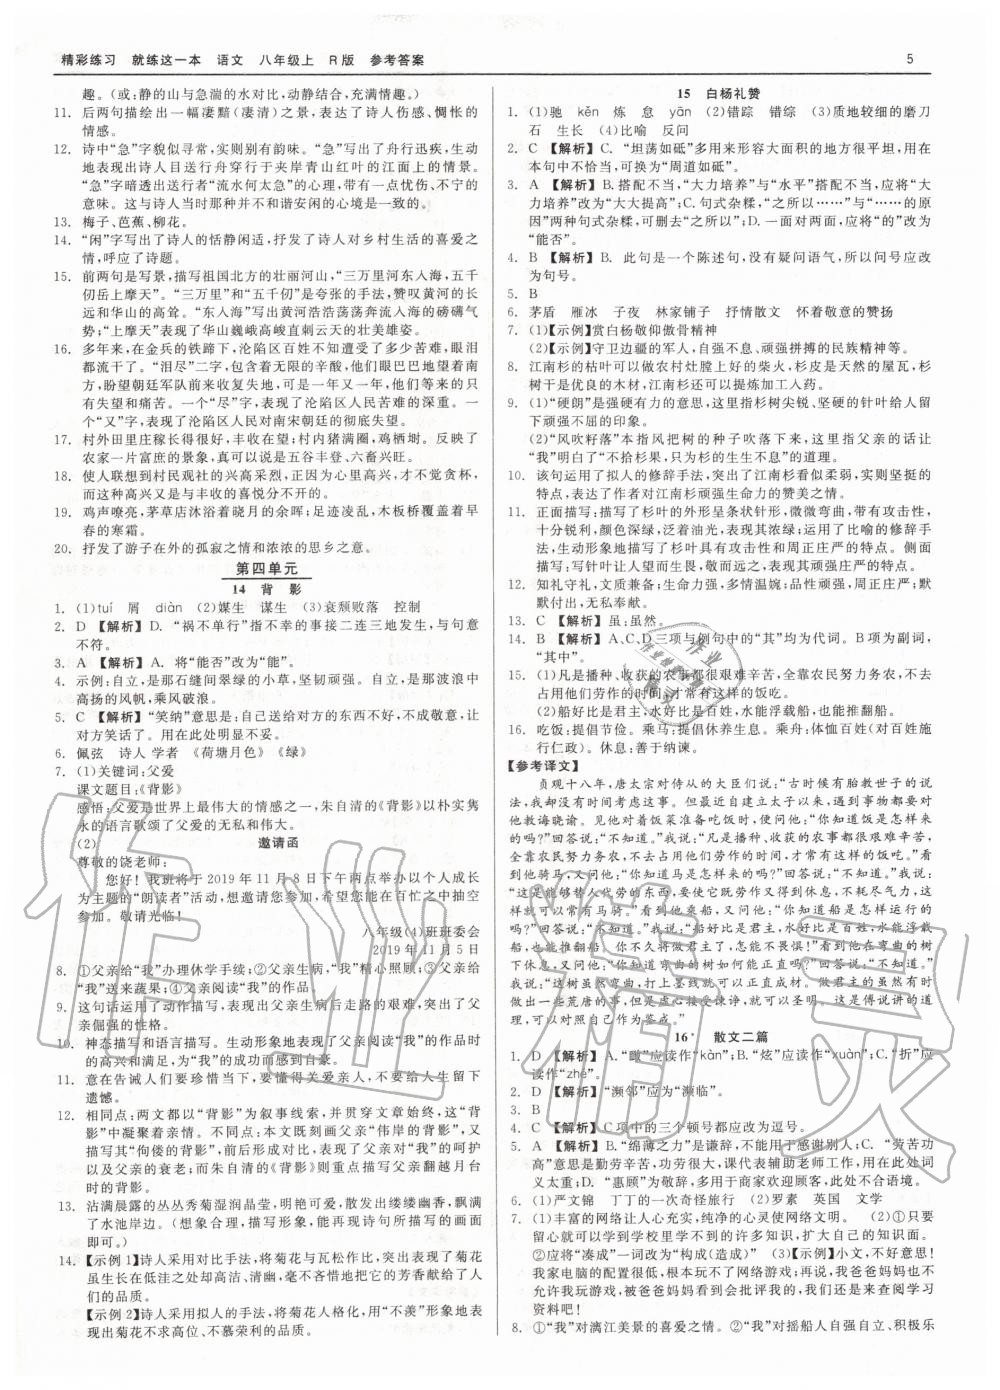 精彩练习　就练这一本　语文　八年级上　R版　参考答案
5
趣。(或:静的山与急湍的水对比,动静结合,充满情趣。)
11. 后两句描绘出一幅凄黯(凄清)之景,表达了诗人伤感、惆怅的
情感。
12. 诗中“急”字貌似寻常,实则别有韵味。“急”写出了舟行迅疾,生
动表现出诗人乘船行舟穿行于夹岸青山红叶的江面上的情景。
“急”字暗透出送行者“流水何太急”的心理,带有一点忧伤、不宁的
意味。这与诗人当时那种并不和谐安闲的心境是一致的。
13. 梅子、芭蕉、柳花。
14. “闲”字写出了诗人的恬静闲适,抒发了诗人对乡村生活的喜爱之
情,呼应了诗题。
15. 前两句是写景,描写祖国北方的壮丽河山,“三万里河东入海,五千
仞岳上摩天”。“三万里”和“五千仞”是夸张的手法,赞叹黄河的长
远和华山的高耸。“东入海”写出黄河浩浩荡荡奔流入海的磅礴气
势;“上摩天”表现了华山巍峨高耸直刺云天的壮美雄姿。
16. 多年来,在金兵的铁蹄下,沦陷区百姓不知遭受了多少苦难,眼泪
都流干了。“泪尽”二字,包含着无限的辛酸,他们眼巴巴地望着南
方,盼望朝廷军队前来收复失地,可是一年又一年,带给他们的是
失望和痛苦。一个“尽”字,表现了沦陷区人民苦难的深重。一个
“又”字,表现了沦陷区人民对南宋朝廷的彻底失望。
17. 村外田里庄稼长得很好,丰收在望;村内猪满圈,鸡栖埘。反映了
农家一片富庶的景象,真可以说是五谷丰登、六畜兴旺。
18. 使人联想到村民观社的兴高采烈,正因为心情不平常才贪欢,而
这种高兴又是与丰收的喜悦分不开的。
19. 鸡声嘹亮,茅草店沐浴着晓月的余晖;足迹凌乱,木板桥覆盖着早
春的寒霜。
20. 抒发了游子在外的孤寂之情和浓浓的思乡之意。
第四单元
14　背　影
1. (1)tuí　屑　diàn　(2)媒生　谋生　(3)衰颓败落　控制
2. D 【解析】D. “祸不单行”指不幸的事接二连三地发生,与句意
不符。
3. A 【解析】A. 将“能否”改为“能”。
4. 示例:自立,是那石缝间翠绿的小草,坚韧成长。自立,是那波浪中
高扬的风帆,乘风破浪。
5. C 【解析】“笑纳”意思是:自己送给对方的东西不好,不成敬意,让
对方笑话了。用在此处明显不妥。
6. 佩弦　诗人 学者　《荷塘月色》《绿》
7. (1)关键词:父爱
课文题目:《背影》
感悟:父爱是世界上最伟大的情感之一,朱自清的《背影》以朴实隽
永的语言歌颂了父爱的无私和伟大。
(2)　邀请函
尊敬的饶老师:
您好!我班将于2019年11月8日下午两点举办以个人成长
为主题的“朗读者”活动,想邀请您参加,希望您能在百忙之中抽空
参加。敬请光临!
八年级(4)班班委会
2019年11月5日
8. ①父亲给“我”办理休学手续;②父亲生病,“我”精心照顾;③父亲给
“我”送来蔬果;④父亲阅读“我”的作品
9. 这句话运用了动作描写,表现出父亲生病后走路的艰难,突出了父
亲倔强的性格。
10. 神态描写和语言描写。生动形象地表现了父亲阅读“我”的作品时
的高兴和满足,为“我”的成功而感到自豪。
11. 意在告诫人们要珍惜当下,要懂得关爱亲人,不要给人生留下
遗憾。
12. 相同点:两文都以“背影”为叙事线索,并贯穿文章始终,这“背
影”中凝聚着亲情。不同点:本文既刻画父亲“伟岸的背影”,又
描写其“佝偻的背影”,前后形成对比,表现了父亲对“我”的呵护
以及父亲的衰老;而朱自清的《背影》则重点描写父亲翻越月台
时的背影。
13. 沾满晨露的丛丛秀菊湿润晶莹,明艳可爱,散发出缕缕幽香,飘满
了水池岸边。(想象合理,描写形象,能再现诗句所描绘的画面
即可。)
14. 【示例1】诗人采用对比手法,将菊花与瓦松作比,突出表现了菊花
虽生长在低洼之处却高洁、清幽,毫不吝惜地把它的芳香献给了人
们的品质。
【示例2】诗人采用拟人的手法,将菊花人格化,用“不羡”形象地表
现出菊花不求高位、不慕荣利的品质。
15　白杨礼赞
1. (1)驰　kěn　炼　怠　yān　(2)错踪　错综　(3)质地较细的磨刀
石　生长　(4)比喻　反问
2. C 【解析】C. “坦荡如砥”多用来形容大面积的地方十分平坦,用在
本句中不恰当,可换为“周道如砥”。
3. A 【解析】B. 搭配不当,“大力培养”与“水平”搭配不当,应将“大力
培养”改为“大大提高”;C. 句式杂糅,“之所以……”与“……的原
因”两种句式杂糅,可删去“之所以”;D. 一面对两面,应将“的”改为
“能否”。
4. B 【解析】B. 此句是一个陈述句,没有疑问语气,所以问号应改
为句号。
5. B
6. 茅盾　雁冰　子夜　林家铺子　抒情散文　怀着敬意的赞扬
7. (1)【示例】赏白杨敬仰傲骨精神
(2)【示例】守卫边疆的军人,自强不息、顽强拼搏的民族精神等。
8. 江南杉的枯叶可以做农村灶膛上好的柴火,杉皮是天然的屋瓦,杉
树干是优良的木材,江南杉还可以提炼加工入药。
9. (1)“硬朗”是强硬有力的意思,这里指杉树尖锐、坚硬的针叶给人留
下顽强不屈的印象。
(2)“风吹籽落”本指风把树的种子吹落下来,这里指父亲的话让
“我”明白了“不拾杉果,只为杉的生生不息”的道理。
10. 该句运用了拟人的修辞手法,突出了江南杉看似柔弱,实则坚挺的
特点,表达了作者对江南杉顽强生命力的赞美之情。
11. 正面描写:描写了杉叶的外形呈条状针形,微微弯曲,带有攻击性,
十分锐利,颜色深绿,泛着油光,表现其浓绿;运用了比喻的修辞手
法,生动形象地描写了杉叶具有攻击性和周正庄严的特点。侧面
描写:写针叶让人望而生畏,衬托出其具有攻击性和庄严的特点。
12. 知礼守礼,文质兼备;生命力强,多情温婉;品性高洁,周正庄严;默
默付出,无私奉献。
13. C 【解析】虽:虽然。
14. B 【解析】A、C、D三项与例句中的“其”均为代词。B项为副词,
“其中”。
15. (1)凡是播种、收获的农事都很艰难辛苦,全靠农民努力务农,不去
占用他们劳作的时间,才常有这样的饭吃。
(2)船好比是君主,水好比是百姓,水能浮载船,也能推翻船。
16. 吃饭:提倡节俭。乘马:提倡休养生息。乘舟:体恤百姓(对百姓施
行仁政)。休息:善于纳谏。
【参考译文】
贞观十八年,唐太宗对侍从的大臣们说:“古时候有胎教世子的说
法,我却没有时间考虑这事。但最近自建立太子以来,遇事都要对他
教诲晓谕。见他对着饭菜准备吃饭时,便问他:‘你知道饭是怎样来的
吗?’回答说:‘不知道。’我说:‘凡是播种、收获的农事都很艰难辛苦,全
靠农民努力务农,不去占用他们劳作的时间,才常有这样的饭吃。’看
到他骑马,又问他:‘你知道马是怎样来的吗?’回答说:‘不知道。’我说:
‘这是能够替人代劳的东西,要使它既劳作又得到休息,不耗尽气力,这
样就可以常有马骑。’看到他乘船,又问他:‘你知道船是怎样运行的
吗?’回答说:‘不知道。’我说:‘船好比君主,水好比是百姓,水能浮载
船,也能推翻船,你不久将做君主了,怎能不畏惧!’看到他在弯曲的树下
休息,又问他:‘你知道弯曲的树如何能正直吗?’回答说:‘不知道。’我
说:‘这树虽然弯曲,打上墨线就可以正直成材。做君主的虽然有时做
出一些荒唐的事,但是虚心接受谏诤,就可以圣明。这是傅说讲的道
理,可以对照自己作为鉴戒。’”
16*　散文二篇
1. D 【解析】A. “瞰”应读作“kàn”;B. “炫”应读作“xuàn”;C. “折”应
读作“zhé”。
2. D 【解析】“濒邻”应为“濒临”。
3. B
4. C 【解析】C项中的三个顿号都应改为逗号。
5. A 【解析】B. “绵薄之力”是谦辞,不能用于感谢别人;C. “劳苦功
高”意思是勤劳辛苦,功劳很大,课代表辅助老师工作,用在此处词
义太重;D. “惠顾”为敬辞,多用于商家欢迎顾客,此处使用不当。
6. (1)严文锦　丁丁的一次奇怪旅行　(2)罗素　英国　文学
7. (1)丰富的网络让人心充实,纯净的心灵使网络文明。　(2)①只要
留心就可以学到学校里学不到的许多知识,扩大自己的知识面。
②应将“凑成”一词改为“构成(造成)”　(3)【示例】小文,不好意思!
我家电脑的配置很低,根本玩不了网络游戏;再说,我爸爸妈妈也不
允许我玩网络游戏,爸爸妈妈看到会批评我的,我们还是查阅学习
资料吧!
8. ①“我”对漓江美景的喜爱之情。②“我”对摇船人自强自立、积极乐